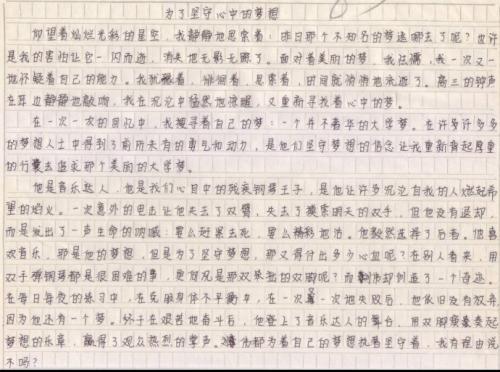 为了坚守心中的梦想
仰望着灿烂光彩的星空,我静静地思索着:昨日那个不知名的梦逃哪去了呢?也许
是我的害怕让它一闪而逝,消失地无影无踪了。面对着美丽的梦,我怯懦,我一次又一
地怀疑着自己的能力。我犹豫着,徘徊着,思索着,时间就悄悄地流逝了。高三的钟声
在耳边静静地敲响,我在沉沦中猛然地惊醒,又重新寻找着心中的梦。
在一次一次的回忆中,我搜寻着自己的梦:一个并不奢华的大学梦。在许多许多多
的梦想人士中得到了前所未有的勇气和动力,是他们坚守梦想的信念让我重新背起厚重
的行囊去追求那个美丽的大学梦。
他是音乐达人,他是我们心目中的残疾钢琴王子,是他让许多沉沦自我的人燃起希
望的焰火。一次意外的电击让他失去了双臂,失去了摸索明天的双手,但他没有退却
而是发出了一声生命的呐喊,要么赶紧去死,要么精彩地活。他毅然选择了后者。他喜
欢音乐,那是他的梦想,但是为了坚守梦想,那又得付出多少心血呢?在别人看来,用
双手弹钢琴都是很困难的事,更何况是那双笨拙的双脚呢?而刘伟却创造了一个奇迹。
在每日每夜的练习中,在克服身体不平衡中,在一次又一次地失败后,他依旧没有放弃
因为他还有一个梦。终于在艰苦地奋斗后,他登上了音乐达人的舞台,用双脚演奏奏起
梦想的乐章,赢得了观众热烈的掌声。刘伟都为着自己的梦想执着坚守着,我有理由说
不吗?